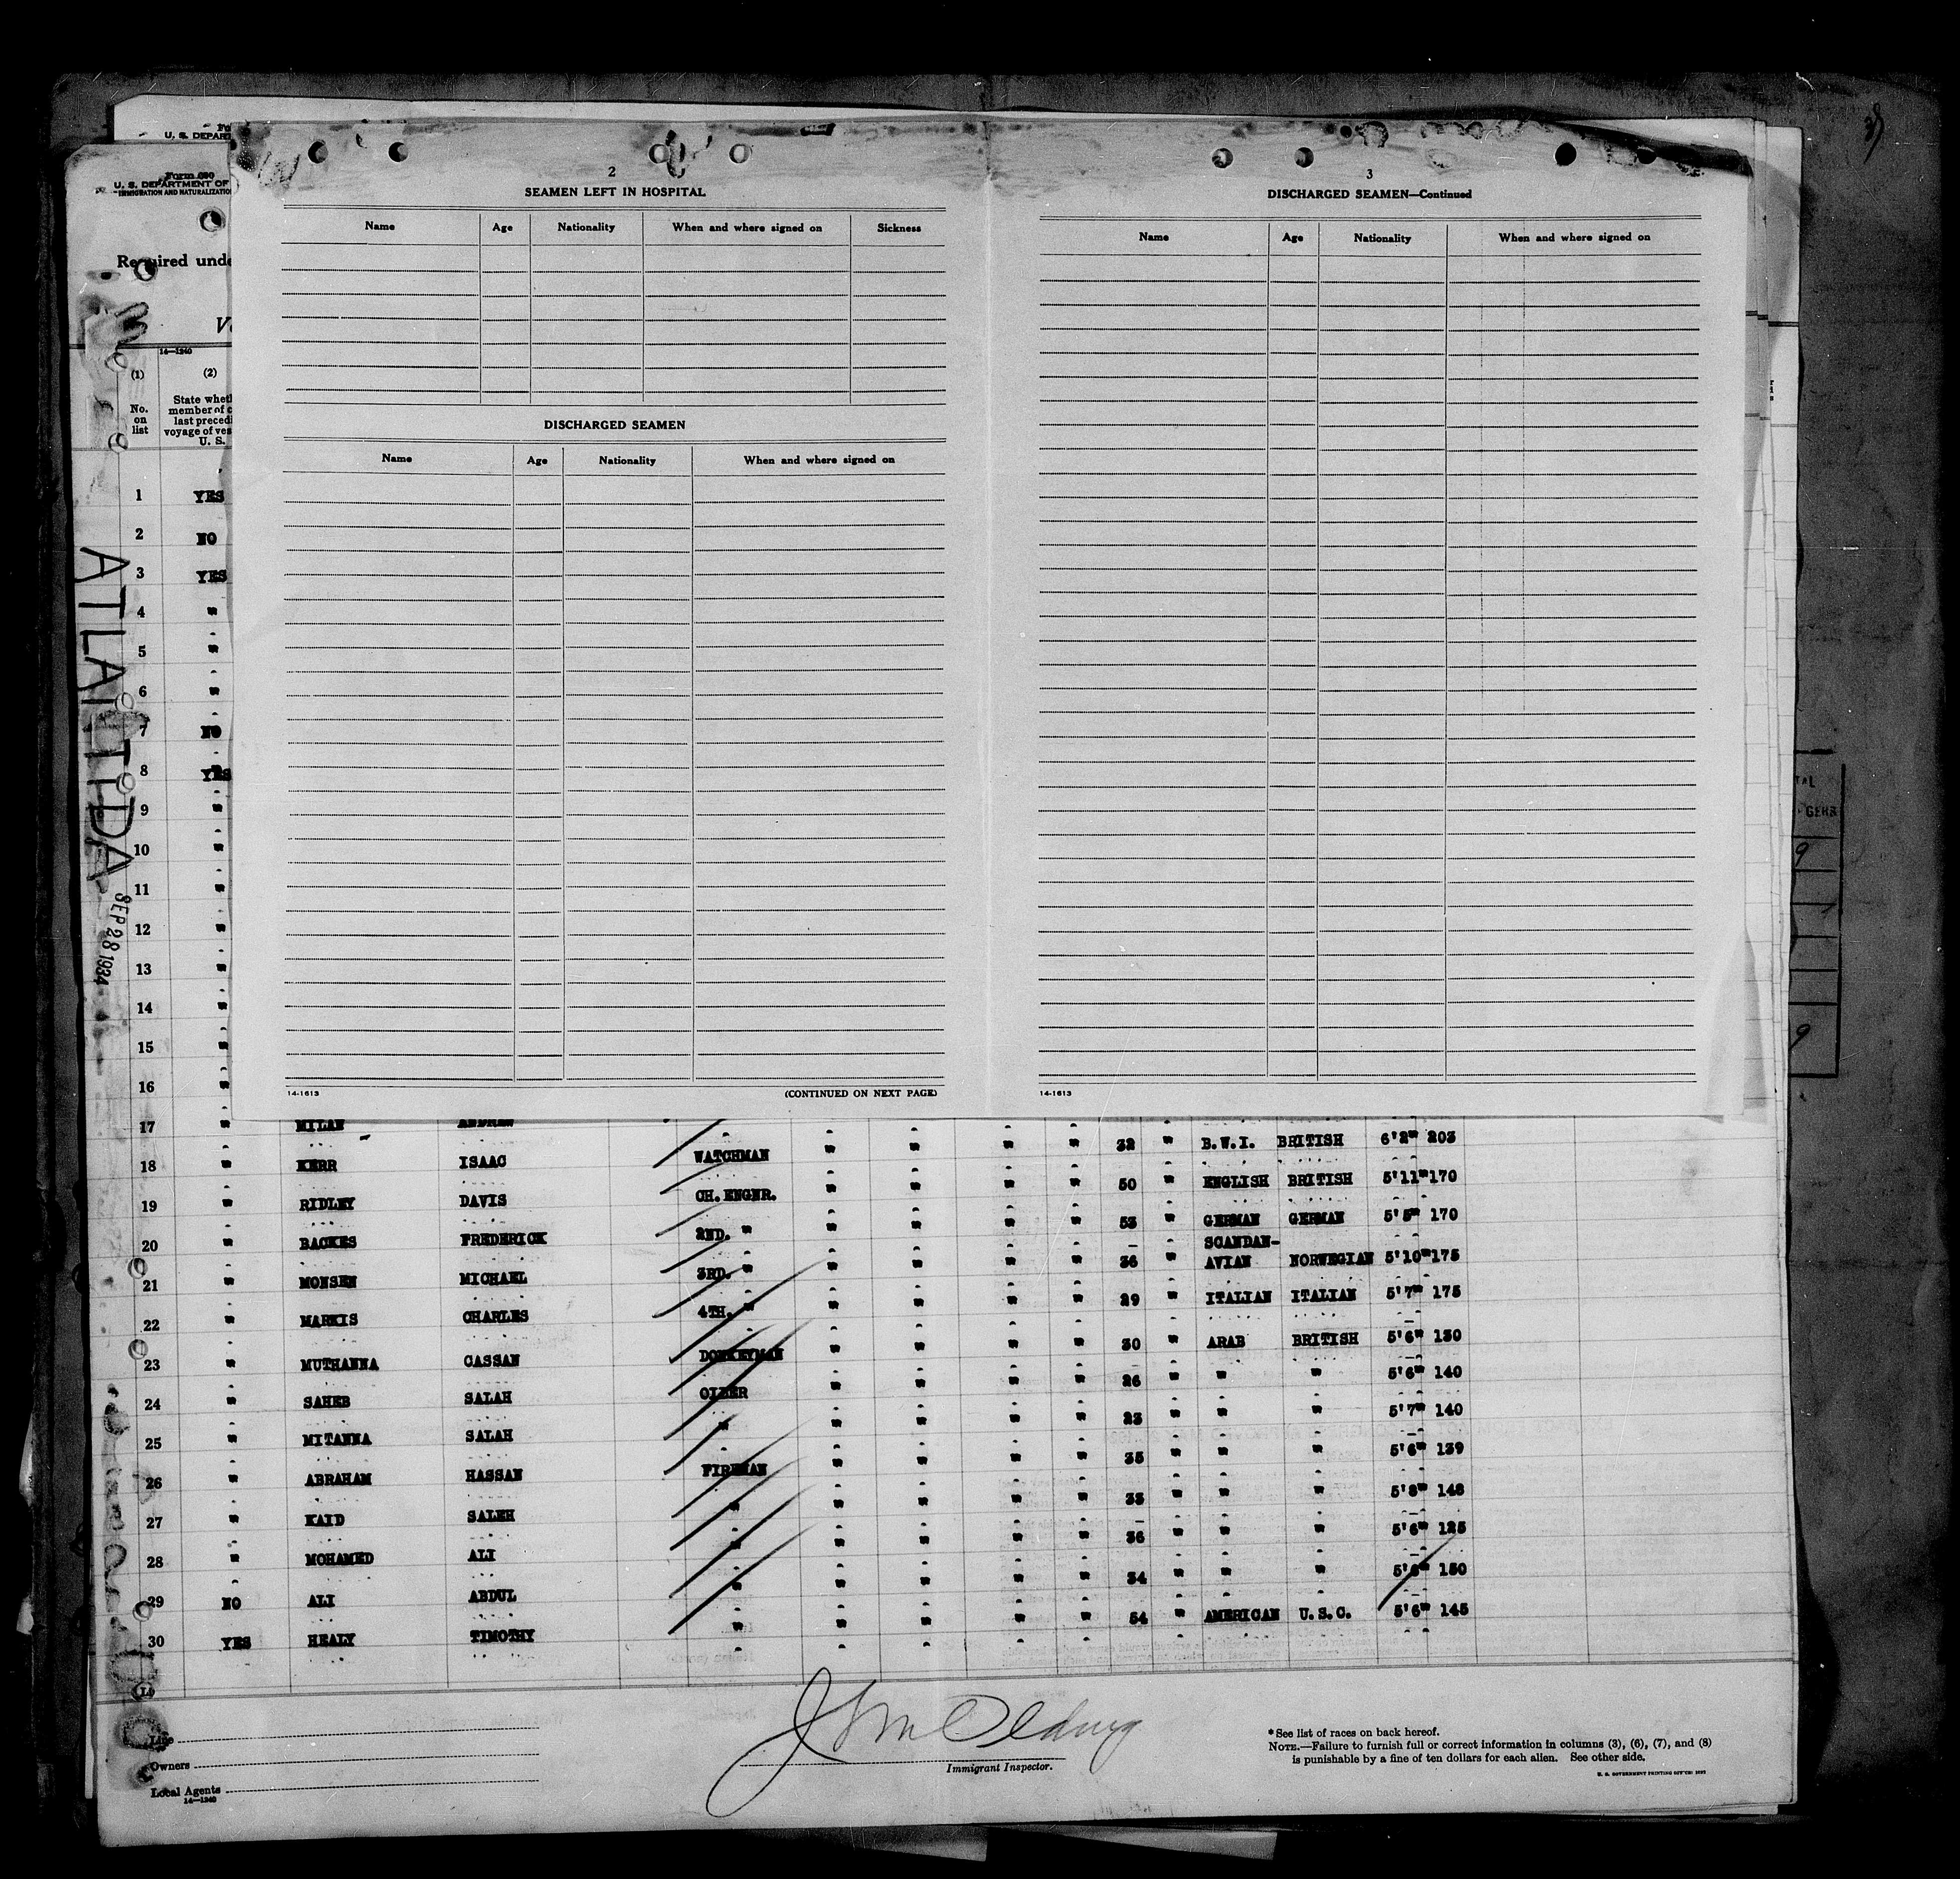 Form 680
U. S. DEPARTMENT OF
IMMIGRATION AND NATURALIZATION
Required unde
14—1240
(1)
No.
on
list
(2)
State wheth
member of c
last precedi
voyage of ves
U. S.
ATLANTIDA
SEP 28 1934
2
SEAMEN LEFT IN HOSPITAL
Name Age Nationality When and where signed on Sickness
DISCHARGED SEAMEN
Name Age Nationality When and where signed on
14-1613 (CONTINUED ON NEXT PAGE)
3
DISCHARGED SEAMEN—Continued
Name Age Nationality When and where signed on
14-1613
1 YES
2 NO
3 YES
4 "
5 "
6 "
7 NO
8 YES
9 "
10 "
11 "
12 "
13 "
14 "
15 "
16 "
17 " MILAN ANDREW " " " " " 32 " B.W.I. BRITISH 6'2" 203
18 " KERR ISAAC WATCHMAN " " " " 50 " ENGLISH BRITISH 5'11" 170
19 " RIDLEY DAVIS CH. ENGNR. " " " " 53 " GERMAN GERMAN 5'5" 170
20 " BACKES FREDERICK 2ND. " " " " " 36 " SCANDAN-
AVIAN NORWEGIAN 5'10" 175
21 " MONSEN MICHAEL 3RD. " " " " " 29 " ITALIAN ITALIAN 5'7" 175
22 " MARKIS CHARLES 4TH. " " " " " 30 " ARAB BRITISH 5'6" 130
23 " MUTHANNA CASSAN DONKEYMAN " " " " 26 " " " 5'6" 140
24 " SAHEB SALAH OILER " " " " 23 " " " 5'7" 140
25 " MITANNA SALAH " " " " " 35 " " " 5'6" 139
26 " ABRAHAM HASSAN FIREMAN " " " " 33 " " " 5'8" 148
27 " KAID SALEH " " " " " 36 " " " 5'6" 125
28 " MOHAMED ALI " " " " " 34 " " " 5'6" 150
29 NO ALI ABDUL " " " " " 54 " AMERICAN U.S.C. 5'6" 145
30 YES HEALY TIMOTHY "
Line
Owners
Local Agents
14—1240
Immigrant Inspector.
*See list of races on back hereof.
NOTE.—Failure to furnish full or correct information in columns (3), (6), (7), and (8)
is punishable by a fine of ten dollars for each alien. See other side.